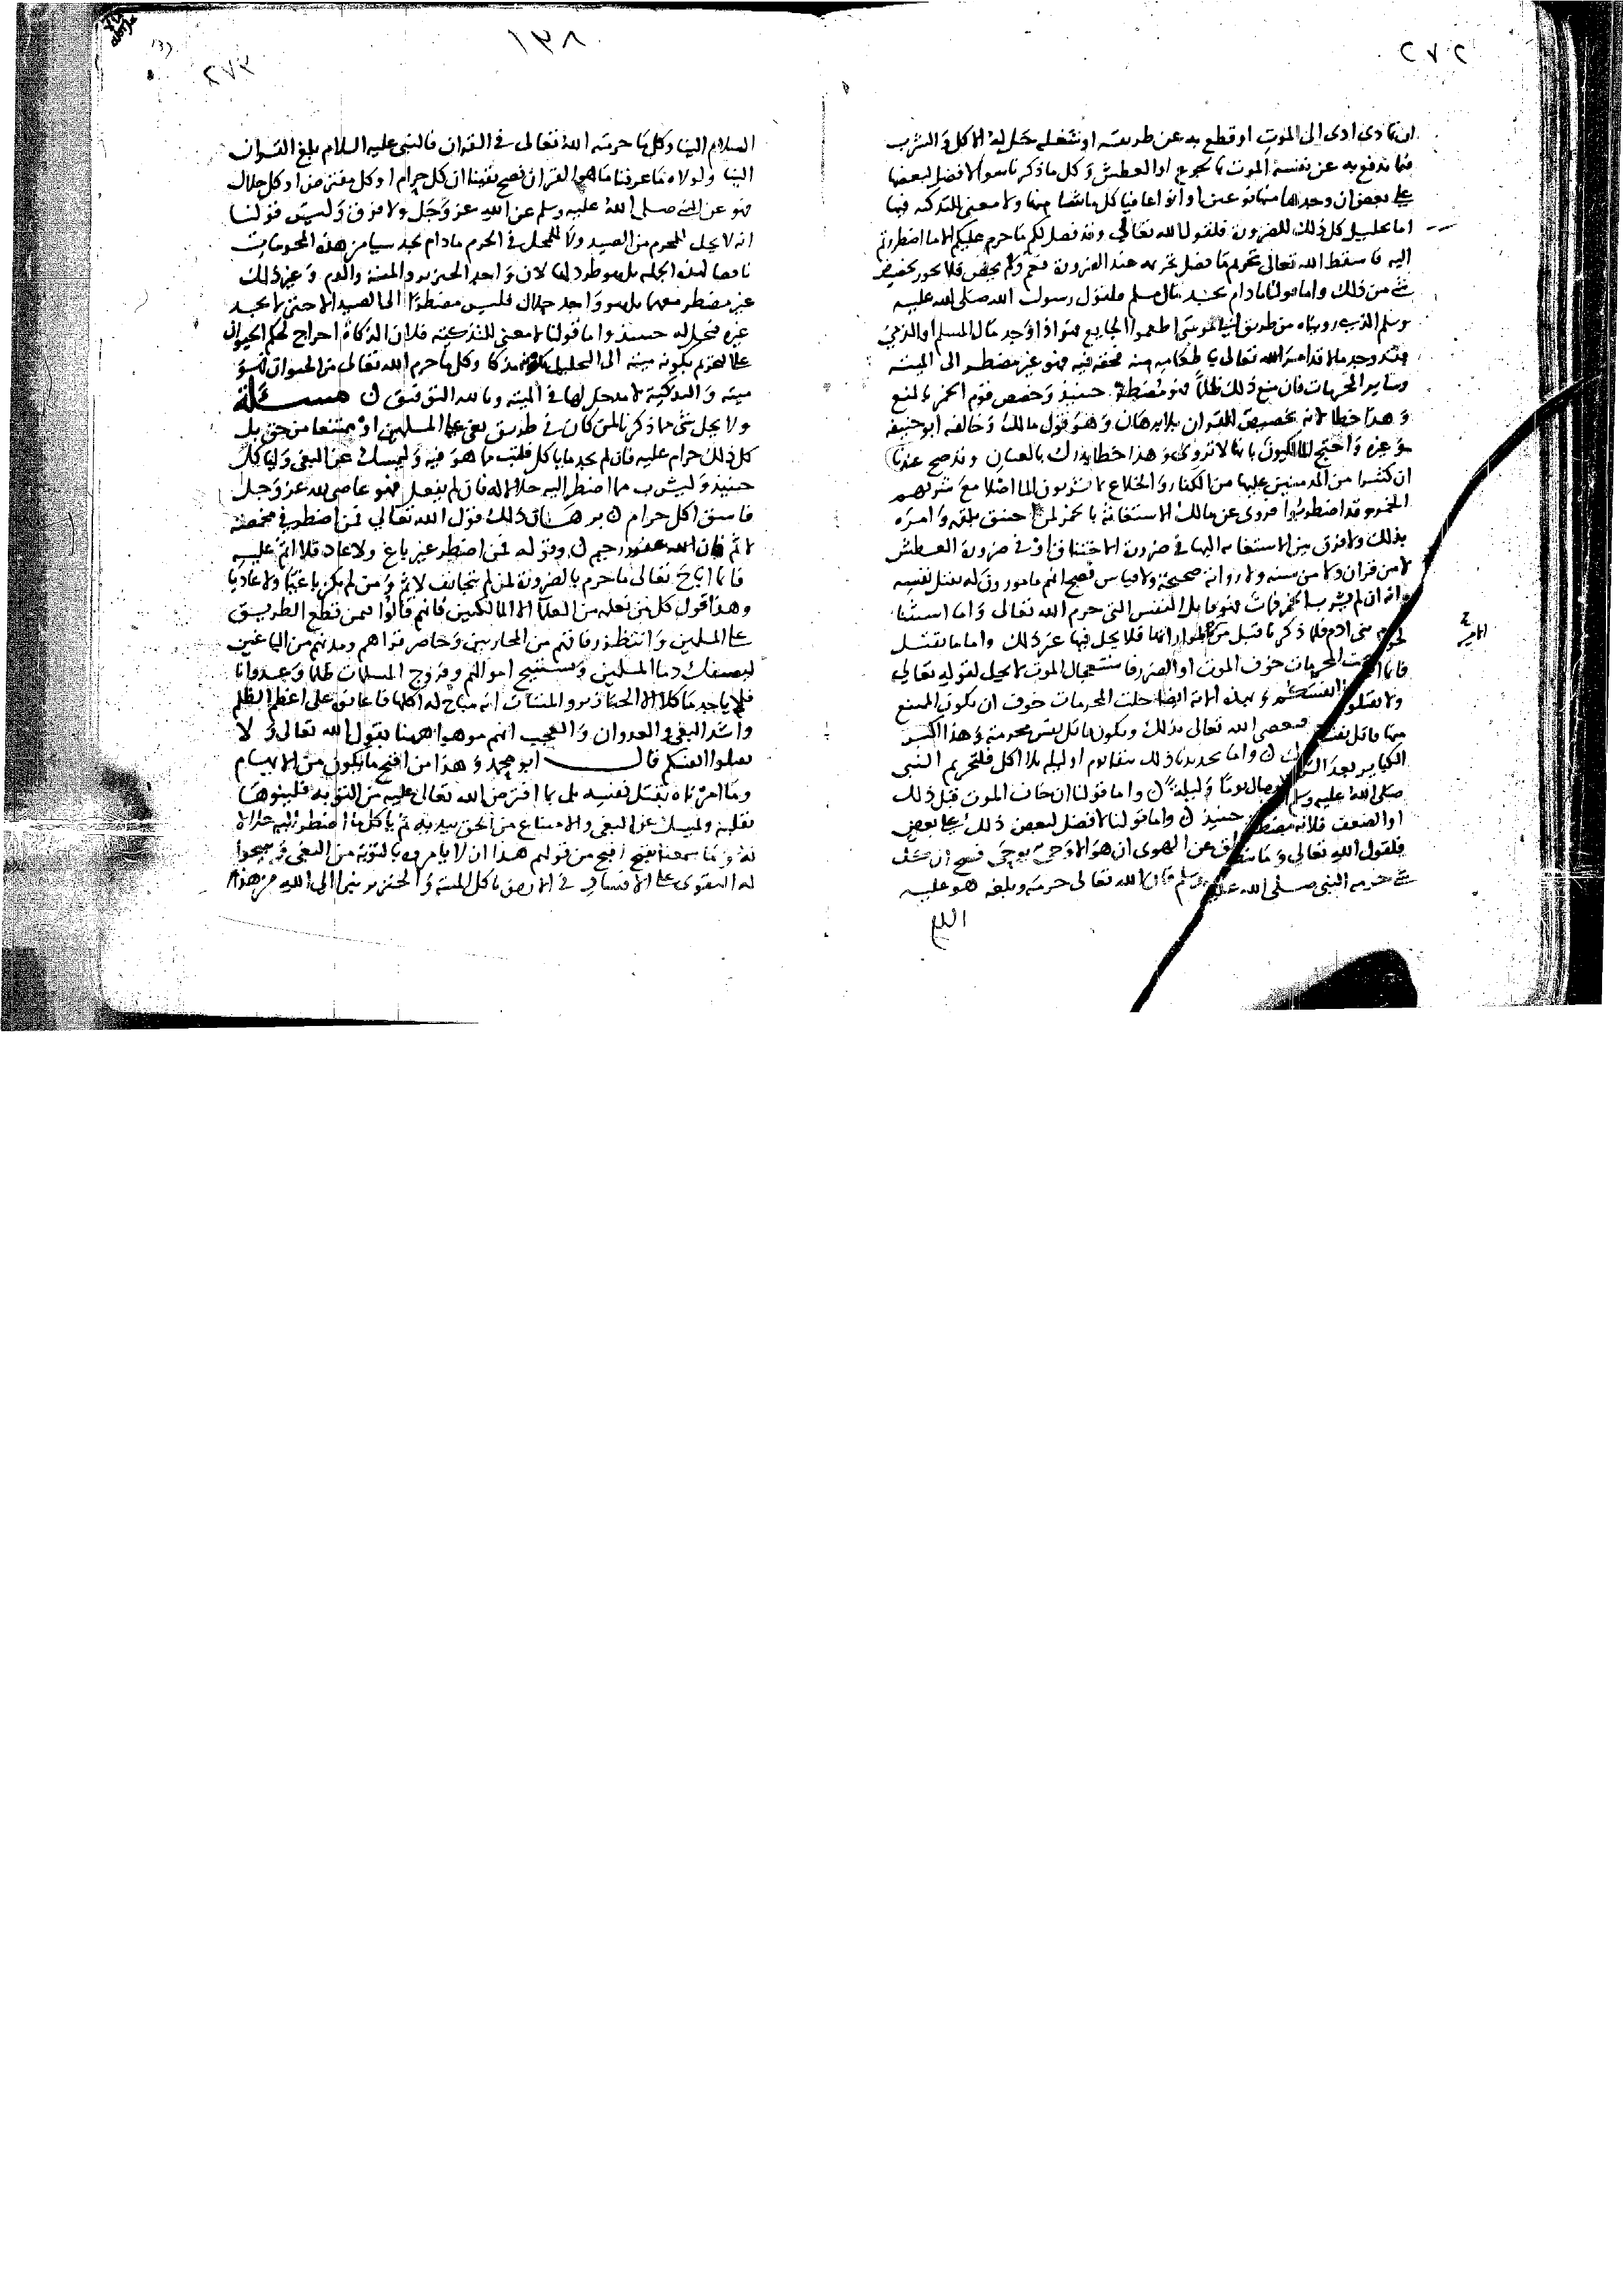 ٢٧٢
ان تمادى ادى الى الموت او قطع به عن طريقه او شغله حل له الاكل والشرب
فيما يدفع به عن نفسه الموت بالجوع او العطش وكل ما ذكرنا سوا لا فضل لبعضها
على بعض ان وجد منها نوعين او انواعا فياكل ما شا منها ولا معنى للتذكيه فيها
اما تحليل كل ذلك للضرورة فلقول الله تعالى وقد فصل لكم ما حرم عليكم الا ما اضطررتم
اليه فاسقط الله تعالى تحريم ما فصل تحريمه عند الضرورة فعم ولم يخص فلا يجوز تخصيص
شي من ذلك واما قولنا ما دام يجد مال مسلم فلقول رسول الله صلى الله عليه
وسلم الذي رويناه من طريق ابي موسى اطعموا الجايع فهو اذا وجد مال المسلم او الذمي
فقد وجد مالا قد امر الله تعالى باطعامه منه فحقه فيه فهو غير مضطر الى الميته
وساير المحرمات فان منع ذلك ظلما فهو مضطر حينيذ وخصص قوم الخمر بالمنع
وهذا خطا لانه تخصيص للقران بلا برهان وهو قول مالك وخالفه ابو حنيفه
وغيره واحتج المالكيون بانها لا تروي وهذا خطا يدرك بالعيان وقد صح عندنا
ان كثيرا من المدمنين عليها من الكفار والخلاع لا يشربون الما اصلا مع شربهم
الخمر وقد اضطربوا فروى عن مالك الاستغاثة بالخمر لمن اختنق بلقمه وامره
بذلك ولا فرق بين الاستغاثه اليها في ضرورة الاختناق او في ضرورة العطش
لا من قران ولا من سنه ولا رواية صحيحة ولا قياس فصح انهم مامورون له بقتل نفسه
وانه ان لم يشرب الخمر فمات فهو قاتل النفس التي حرم الله تعالى واما استثنا
لحوم بني ادم فلما ذكرنا قبل من الامر بمواراتها فلا يحل فيها غير ذلك واما ما يقتل
فانما ابيحت المحرمات خوف الموت او الضرر فاستعجال الموت لا يحل لقوله تعالى
ولا تقتلوا انفسكم وبهذه الاية ايضا حلت المحرمات خوف ان يكون الممتنع
منها قاتل نفسه فعصى الله تعالى بذلك ويكون قاتل نفس محرمة وهذا اكبر
الكباير بعد الشرك ن واما تحديدنا ذلك ببقا يوم او ليله بلا اكل فلتحريم النبي
صلى الله عليه وسلم الوصال يوما وليلة ن واما قولنا ان خاف الموت قبل ذلك
او الضعف فلانه مضطر حينيذ ن واما قولنا لا فضل لبعض ذلك على بعض
فلقول الله تعالى وما ينطق عن الهوى ان هو الا وحي يوحى فصح ان كل
شي حرمه النبي صلى الله عليه وسلم فان الله تعالى حرمه وبلغه هو عليه
السلم
١٣٨
٢٧٣
السلام الينا وكل ما حرمه الله تعالى في القران فالنبي عليه السلام بلغ القران
الينا ولولاه ما عرفنا ما هو القران فصح يقينا ان كل حرام او كل مفترض او كل حلال
فهو عن النبي صلى الله عليه وسلم عن الله عز وجل ولا فرق وليس قولنا
انه لا يحل للمحرم من الصيد ولا للمحل في الحرم ما دام يجد شيا من هذه المحرمات
ناقضا لهذه الجمله بل هو طرد لها لان واجد الخنزير والميتة والدم وغير ذلك
غير مضطر معها بل هو واجد حلال فليس مضطرا الى الصيد الا حتى لا يجد
غيره فيحل له حينيذ واما قولنا لا معنى للتذكيه فلان الذكاة اخراج لحكم الحيوان
عن التحريم بكونه ميته الى التحليل بكونه مذكا وكل ما حرم الله تعالى من الحيوان فهو
ميته والتذكية لا مدخل لها في الميته وبالله التوفيق ن مسئلة
ولا يحل شي مما ذكرنا لمن كان في طريق بغي على المسلمين او ممتنعا من حق بل
كل ذلك حرام عليه فان لم يجد ما ياكل فليتب مما هو فيه وليمسك عن البغي ولياكل
حينيذ وليشرب مما اضطر اليه حلالا له فان لم يفعل فهو عاصي لله عز وجل
فاسق اكل حرام ن برهان ذلك قول الله تعالى فمن اضطر في مخمصه
لاثم فان الله غفور رحيم ن وقوله فمن اضطر غير باغ ولا عاد فلا اثم عليه
فانما اباح تعالى ما حرم بالضرورة لمن لم يتجانف لاثم ومن لم يكن باغيا ولا عاديا
وهذا قول كل من نعلمه من العلما الا المالكيين فانهم قالوا فيمن قطع الطريق
على المسلمين وانتظر رفاقهم من المحاربين وحاصر قراهم ومدنهم من الباغين
ليسفك دما المسلمين ويستبيح اموالهم وفروج المسلمات ظلما وعدوانا
فلم يجد ما كلا الا الخنازير والميتات انه مباح له اكلها فاعانوه على اعظم الظلم
واشد البغي والعدوان والعجب انهم موهوا ههنا بقول الله تعالى ولا
تقتلوا انفسكم قال ابو محمد وهذا من اقبح ما يكون من الايهام
وما امرناه بقتل نفسه بل بما افترض الله تعالى عليه من التوبه فلينوها
بقلبه وليمسك عن البغي والامتناع من الحق بيديه ثم ياكل ما اضطر اليه حلالا
له وما سمعنا بقبيح اقبح من قولهم هذا ان لا يامروه بالتوبة من البغي ويبيحوا
له التقوى على الافساد في الارض باكل الميتة والخنزير نبرا الى الله من هذا